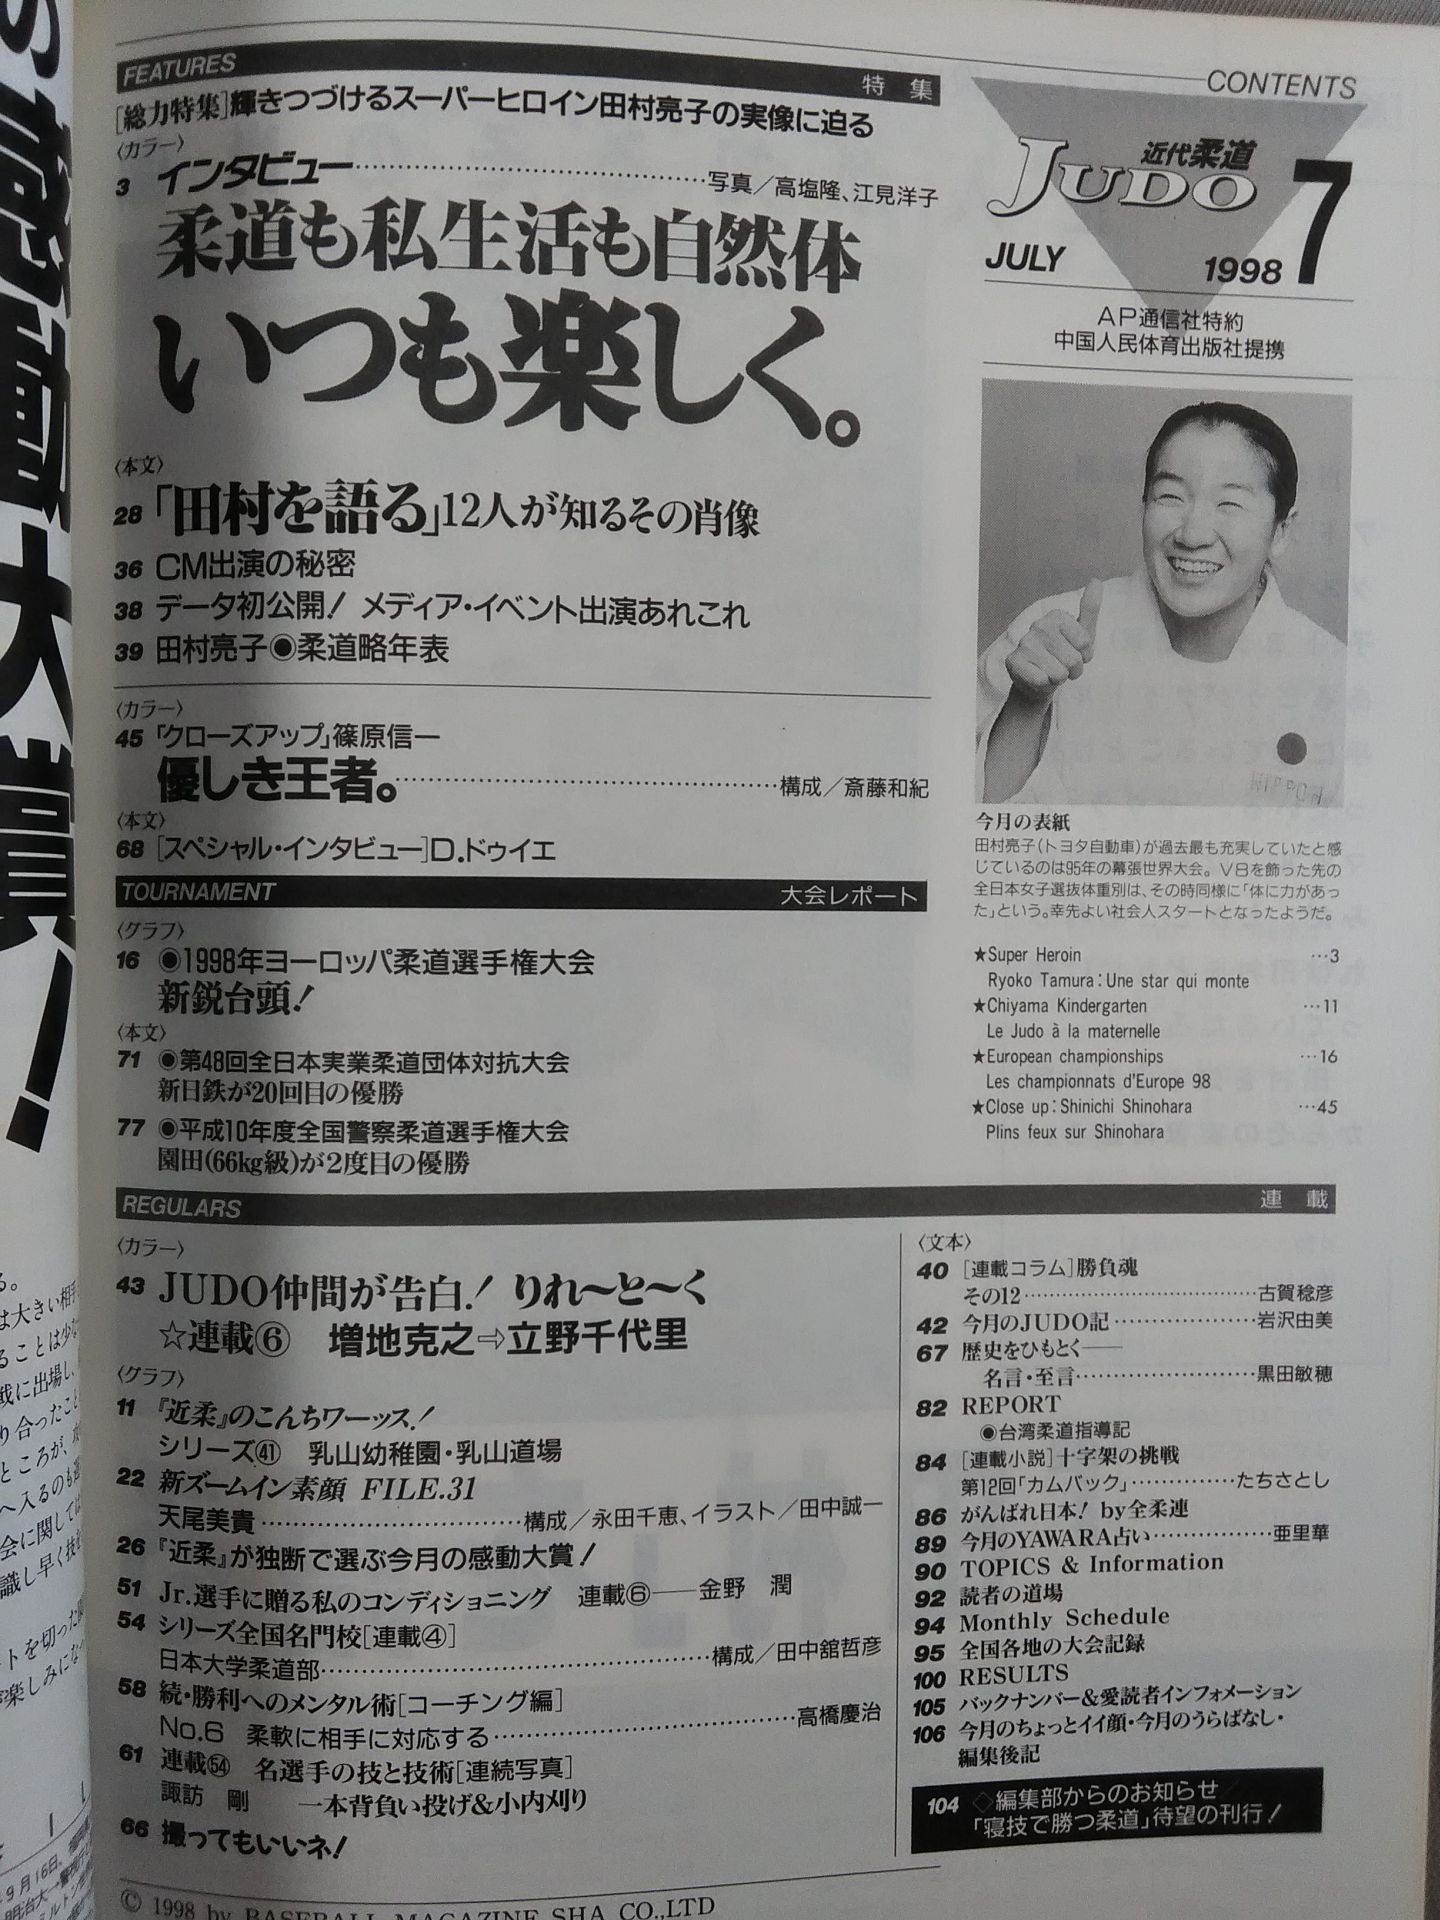 の感動大賞!
FEATURES 特集
[総力特集]輝きつづけるスーパーヒロイン田村亮子の実像に迫る
〈カラー〉
3 インタビュー……写真/高塩隆、江見洋子
柔道も私生活も自然体
いつも楽しく。
〈本文〉
28 「田村を語る」12人が知るその肖像
36 CM出演の秘密
38 データ初公開! メディア・イベント出演あれこれ
39 田村亮子◉柔道略年表
〈カラー〉
45 「クローズアップ」篠原信一
優しき王者。……構成/斎藤和紀
〈本文〉
68 [スペシャル・インタビュー]D.ドゥイエ
TOURNAMENT 大会レポート
〈グラフ〉
16 ◉1998年ヨーロッパ柔道選手権大会
新鋭台頭!
〈本文〉
71 ◉第48回全日本実業柔道団体対抗大会
新日鉄が20回目の優勝
77 ◉平成10年度全国警察柔道選手権大会
園田(66kg級)が2度目の優勝
CONTENTS
近代柔道
JUDO 7
JULY 1998
AP通信社特約
中国人民体育出版社提携
今月の表紙
田村亮子(トヨタ自動車)が過去最も充実していたと感
じているのは95年の幕張世界大会。V8を飾った先の
全日本女子選抜体重別は、その時同様に「体に力があっ
た」という。幸先よい社会人スタートとなったようだ。
★Super Heroin …3
Ryoko Tamura:Une star qui monte
★Chiyama Kindergarten …11
Le Judo à la maternelle
★European championships …16
Les championnats d'Europe 98
★Close up:Shinichi Shinohara …45
Plins feux sur Shinohara
REGULARS 連載
〈カラー〉
43 JUDO仲間が告白! りれ〜と〜く
☆連載⑥ 増地克之⇨立野千代里
〈グラフ〉
11 『近柔』のこんちワーッス!
シリーズ㊶ 乳山幼稚園・乳山道場
22 新ズームイン素顔 FILE.31
天尾美貴……構成/永田千恵、イラスト/田中誠一
26 『近柔』が独断で選ぶ今月の感動大賞!
51 Jr.選手に贈る私のコンディショニング 連載⑥──金野 潤
54 シリーズ全国名門校[連載④]
日本大学柔道部……構成/田中舘哲彦
58 続・勝利へのメンタル術[コーチング編]
No.6 柔軟に相手に対応する……高橋慶治
61 連載54 名選手の技と技術[連続写真]
諏訪 剛 一本背負い投げ&小内刈り
66 撮ってもいいネ!
〈文本〉
40 [連載コラム]勝負魂
その12……古賀稔彦
42 今月のJUDO記……岩沢由美
67 歴史をひもとく──
名言・至言……黒田敏穂
82 REPORT
◉台湾柔道指導記
84 [連載小説]十字架の挑戦
第12回「カムバック」……たちさとし
86 がんばれ日本! by全柔連
89 今月のYAWARA占い……亜里華
90 TOPICS & Information
92 読者の道場
94 Monthly Schedule
95 全国各地の大会記録
100 RESULTS
105 バックナンバー&愛読者インフォメーション
106 今月のちょっとイイ顔・今月のうらばなし・
編集後記
104 ◇編集部からのお知らせ/
「寝技で勝つ柔道」待望の刊行!
© 1998 by BASEBALL MAGAZINE SHA CO.,LTD